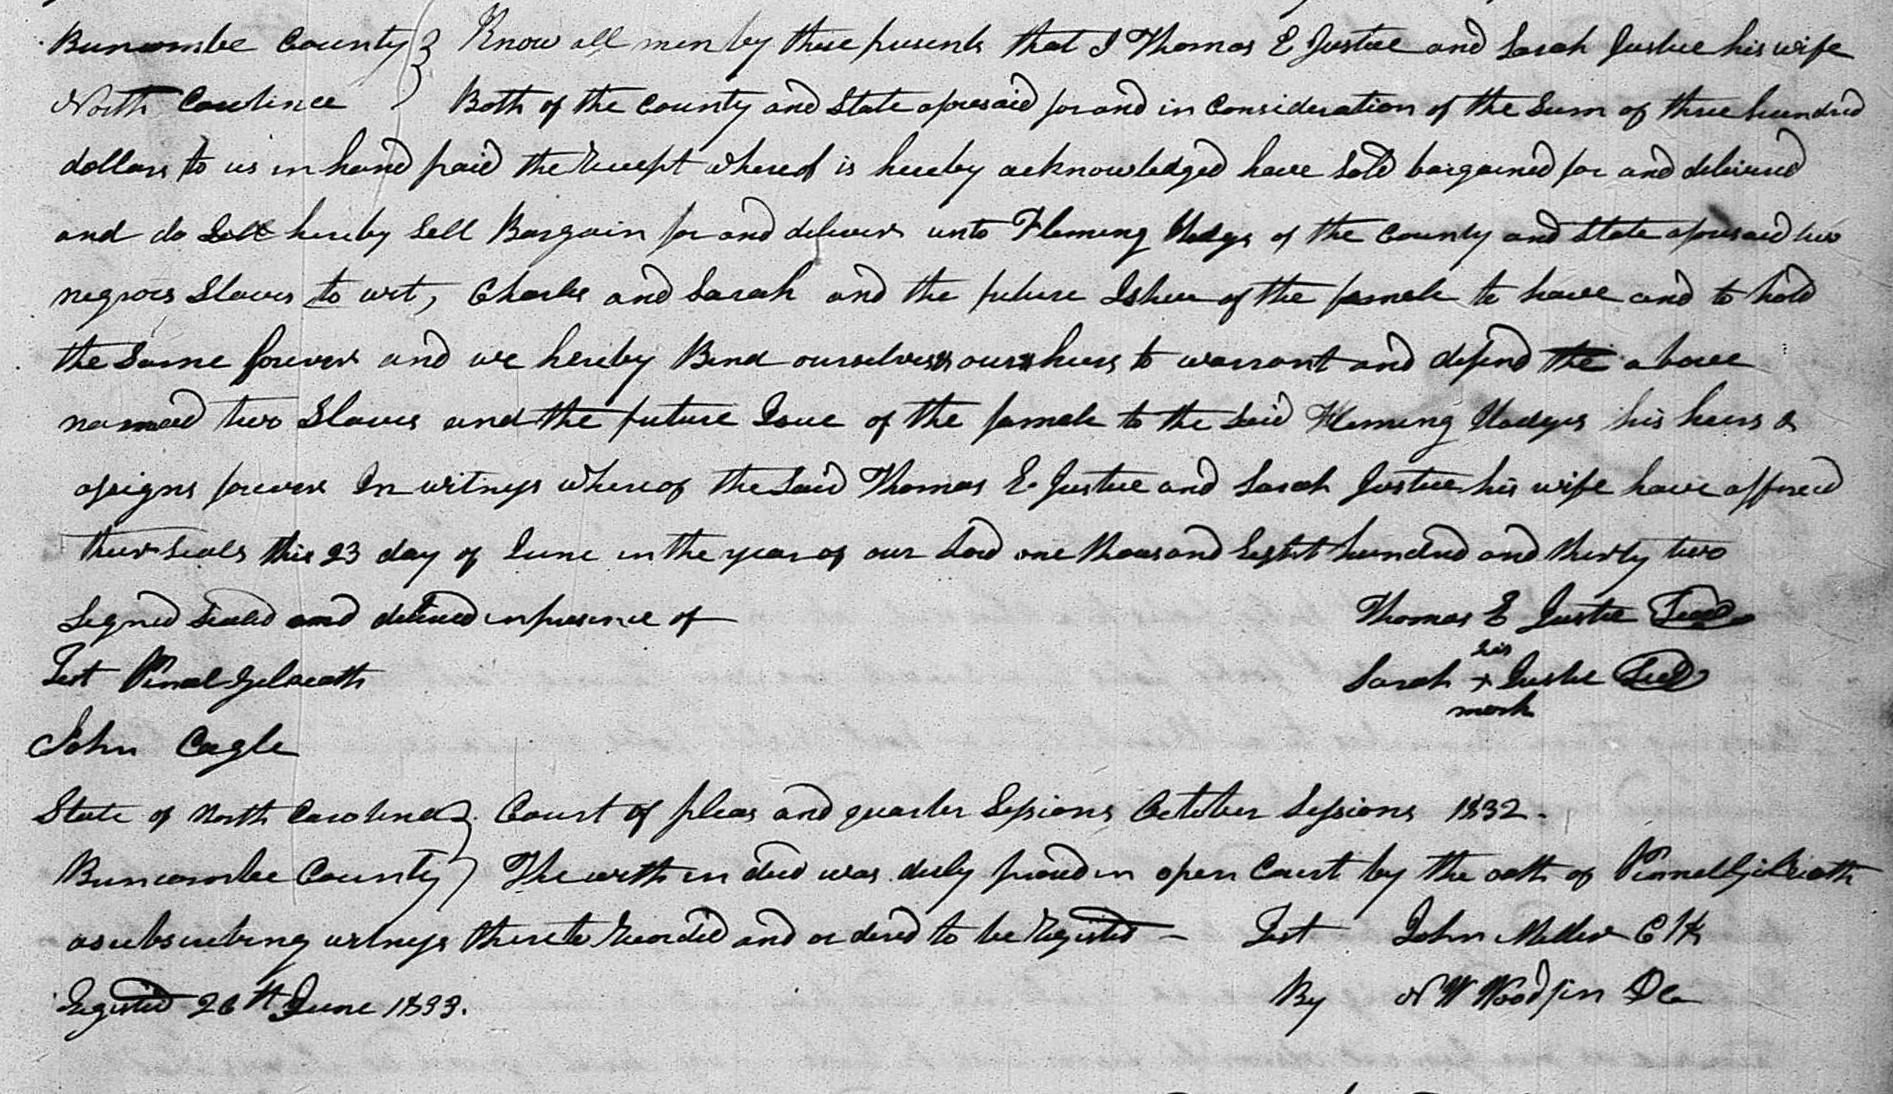 Buncombe County } Know all men by these presents that I Thomas E Justice and Sarah Justice his wife
North Carolina } Both of the County and State aforesaid for and in Consideration of the Sum of three hundred
dollars to us in hand paid the Receipt whereof is hereby acknowledged have Sold bargained for and delivered
and do Sell hereby Sell Bargain for and deliver unto Fleming Hodges of the County and State aforesaid two
negroes Slaves to wit, Charles and Sarah and the future Ishue of the famale to have and to hold
the Same forever and we hereby Bind ourselves & our heirs to warrant and defend the above
named two Slaves and the future Isue of the famale to the Said Fleming Hodges his heirs &
assigns forever In witness whereof the Said Thomas E. Justice and Sarah Justice his wife have affixed
their Seals this 23 day of June in the year of our Lord one thousand Eight hundred and thirty two
Signed Sealed and delivered in presence of Thomas E Justice Seal
his
Test Pinal Gilreath Sarah + Justice Seal
mark
John Cagle
State of North Carolina } Court of pleas and quarter Sessions October Sessions 1832.
Buncombe County } The within deed was duly proved in open Court by the oath of Pinnel Gilreath
a subscribing witness thereto Recorded and ordered to be Registed - Test John Miller Clk
Registed 26th June 1833. By N W Woodfin DC